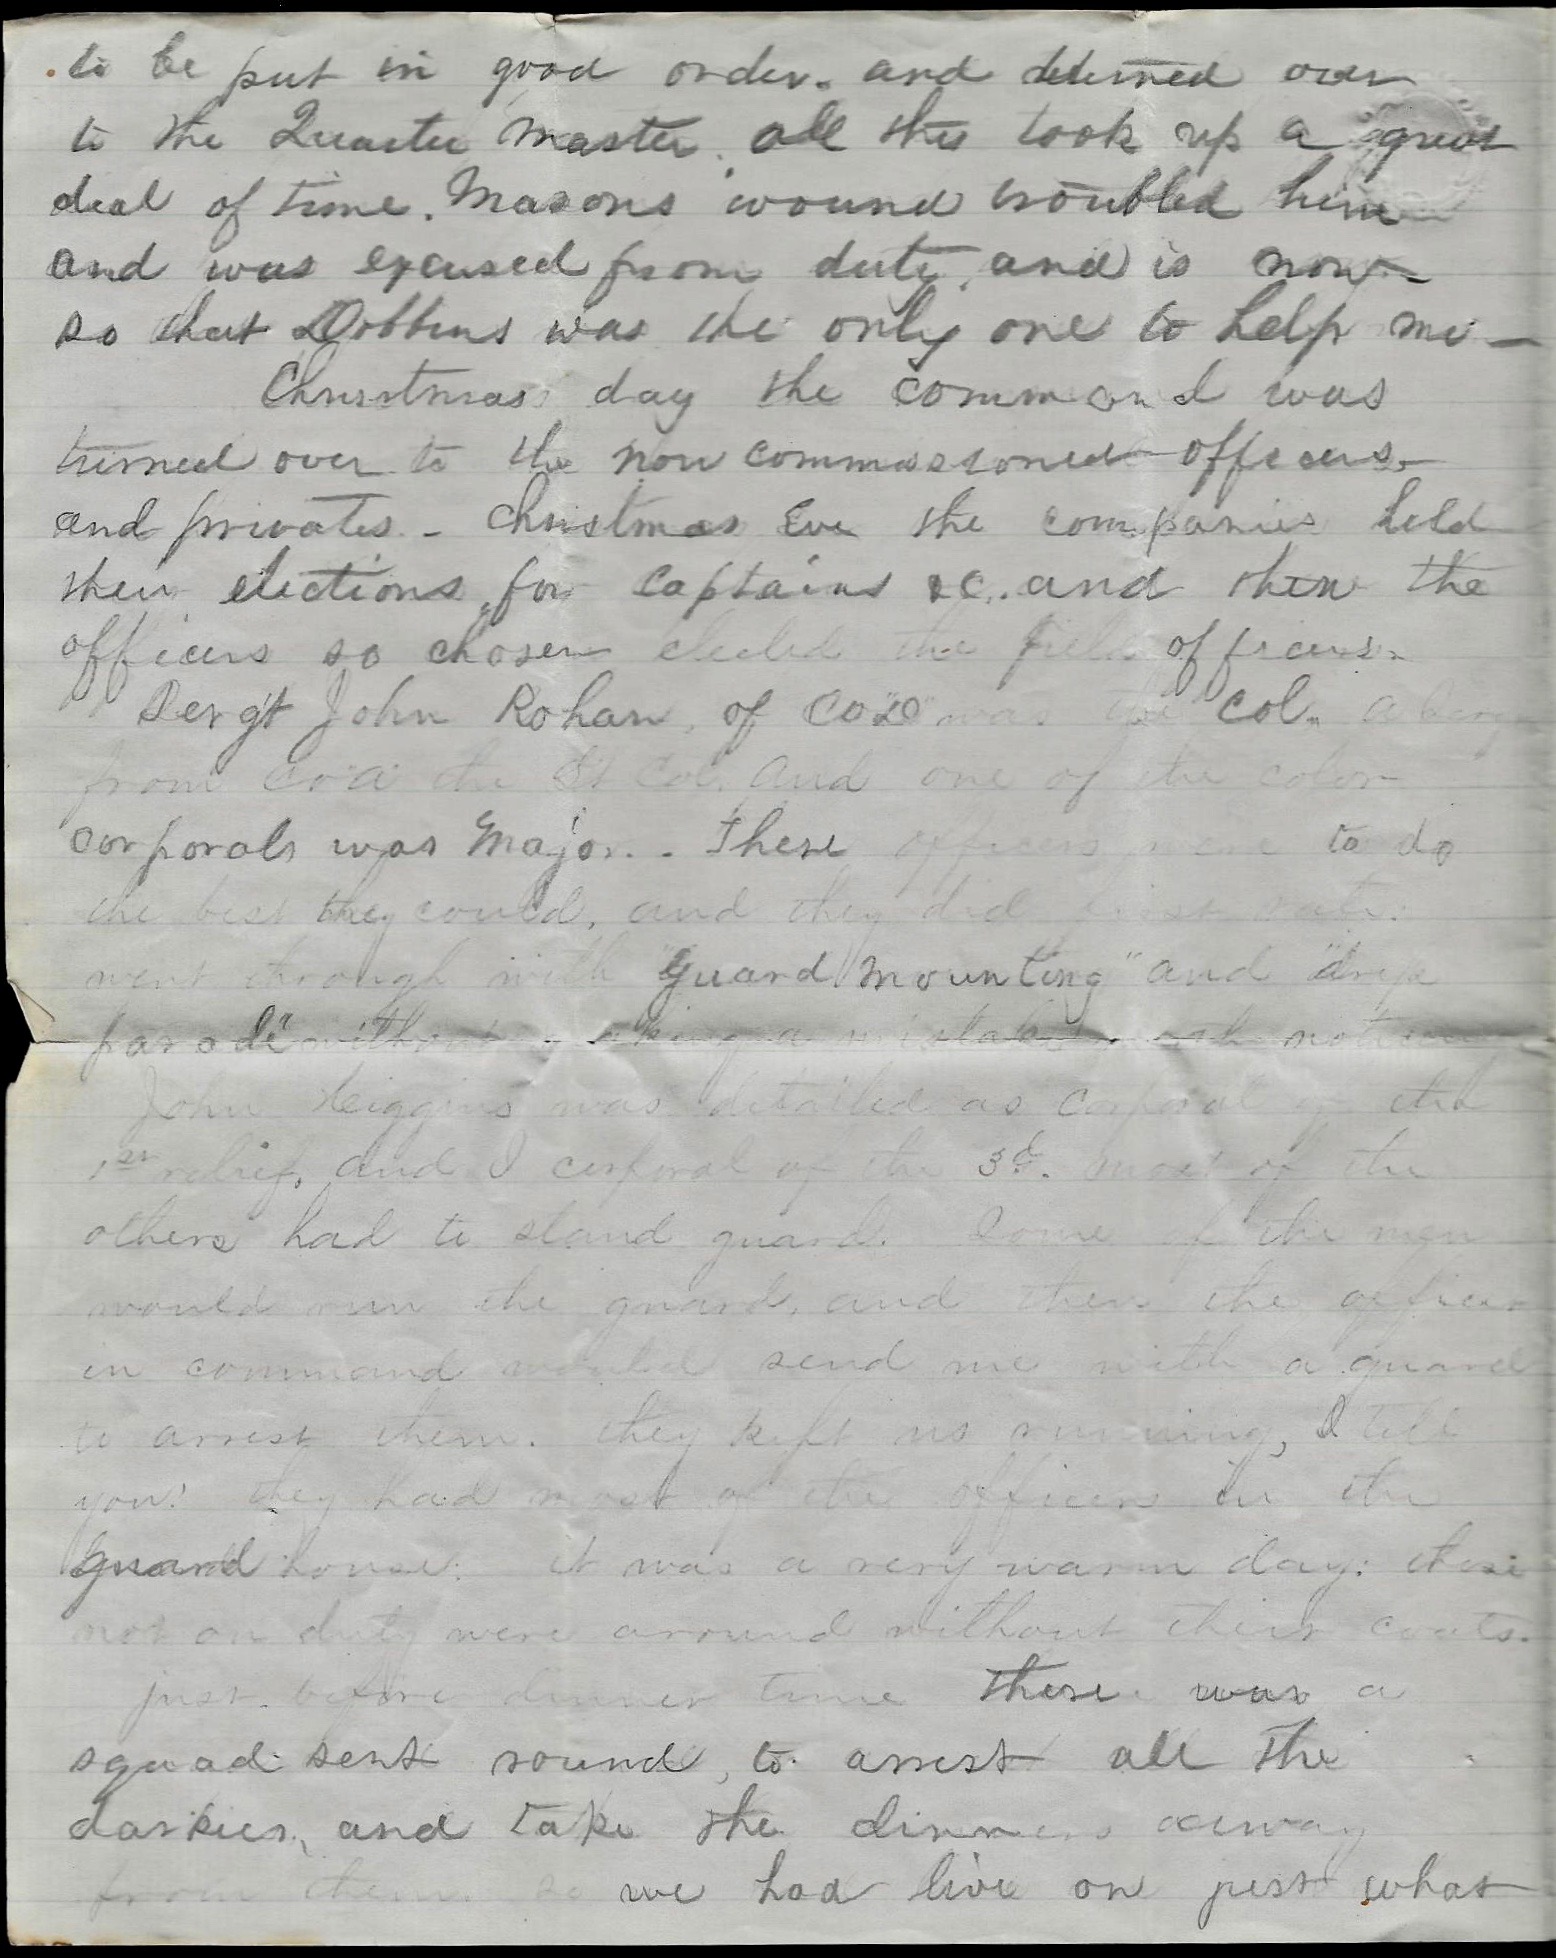 to be put in good order. and returned over
to the Quarter Master. all this took up a great
deal of time. Masons wound troubled him
and was excused from duty, and is now -
so that Dobbins was the only one to help me -
Christmas day the command was
turned over to the non commissioned officers -
and privates - Christmas Eve the companies held
their elections, for captains &c. and then the
officers so chosen elected the field officers.
Serg't John Rohan, of Co "D" was the Col.
from Co "A" the Lt Col. and one of the color
corporals was Major. - These officers were to do
the best they could, and they did first rate:
went through with "guard mounting" and "dress
parade" without making a mistake
John Higgins was detailed as corporal of the
1st relief, and I corporal of the 3d. most of the
others had to stand guard. Some of the men
would run the guard, and then the officer
in command would send me with a guard
to arrest them. they kept us running, I tell
you! they had most of the officers in the
guard house. it was a very warm day: those
not on duty were around without their coats.
just before dinner time there was a
squad sent round, to arrest all the
darkies, and take the dinners away
from them. so we had live on just what